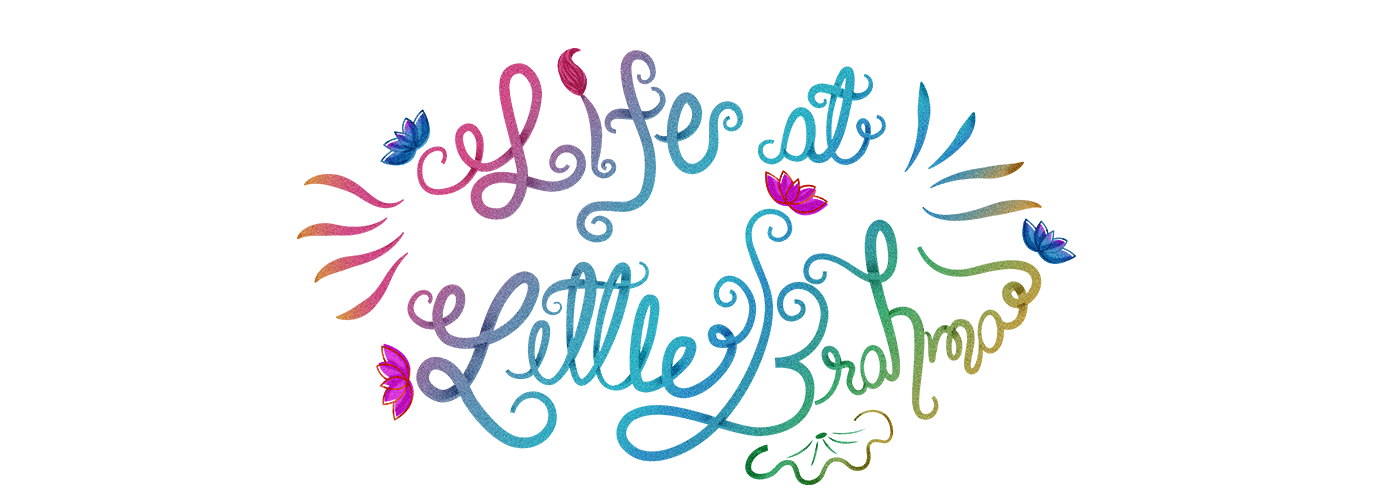 Life at
Little Brahma